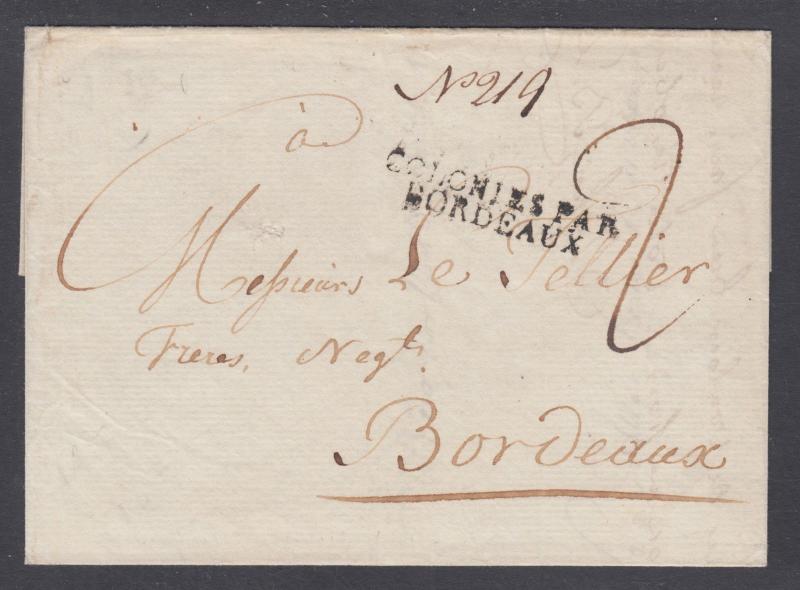 No 219
à
COLONIES PAR
BORDEAUX
2
Messieurs Le Tellier
Freres, Negts.
Bordeaux